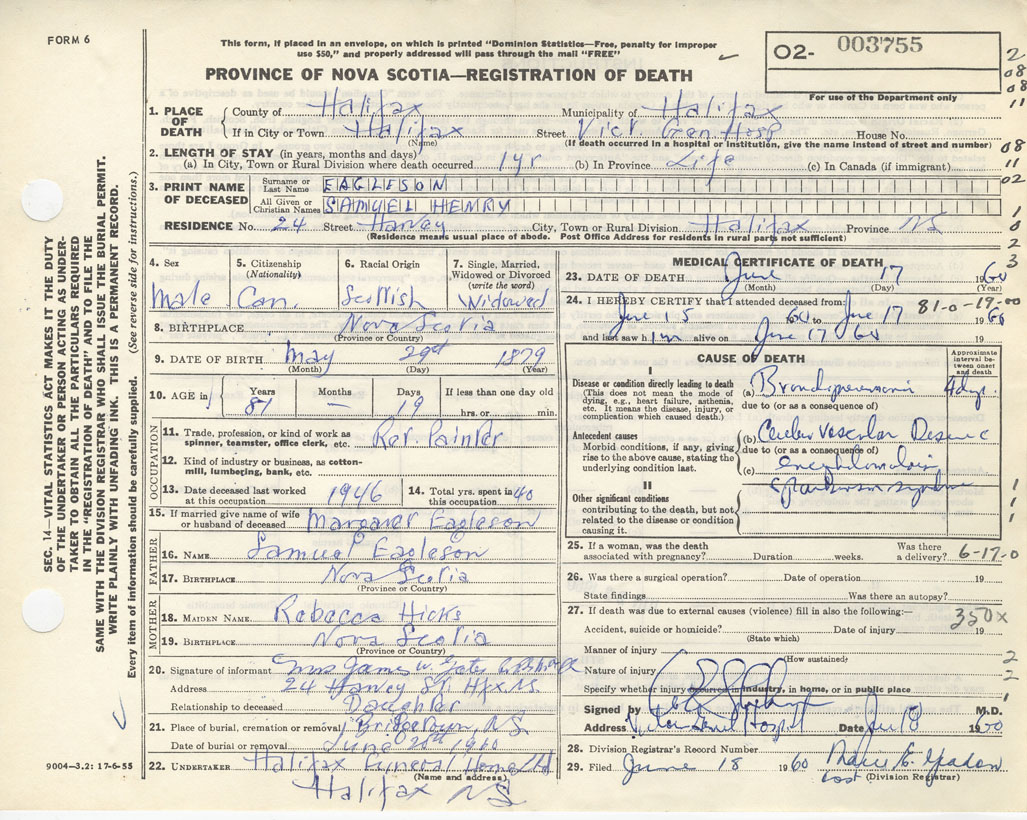 FORM 6
This form, if placed in an envelope, on which is printed "Dominion Statistics—Free, penalty for improper
use $50," and properly addressed will pass through the mail "FREE"
O2- 003755
For use of the Department only
PROVINCE OF NOVA SCOTIA—REGISTRATION OF DEATH
1. PLACE OF DEATH
County of Halifax Municipality of Halifax
If in City or Town Halifax Street Vict Gen Hosp House No.
(Name) (If death occurred in a hospital or institution, give the name instead of street and number)
2. LENGTH OF STAY (in years, months and days)
(a) In City, Town or Rural Division where death occurred 1 yr (b) In Province Life (c) In Canada (if immigrant)
3. PRINT NAME OF DECEASED
Surname or Last Name EAGLESON
All Given or Christian Names SAMUEL HENRY
RESIDENCE No. 24 Street Harvey City, Town or Rural Division Halifax Province NS
(Residence means usual place of abode. Post Office Address for residents in rural parts not sufficient)
4. Sex
Male
5. Citizenship
(Nationality)
Can.
6. Racial Origin
Scottish
7. Single, Married, Widowed or Divorced
(write the word)
Widowed
8. BIRTHPLACE Nova Scotia
(Province or Country)
9. DATE OF BIRTH May 29th 1879
(Month) (Day) (Year)
10. AGE in Years 81 Months — Days 19 If less than one day
hrs. or min.
OCCUPATION
11. Trade, profession, or kind of work as
spinner, teamster, office clerk, etc. Ret. Painter
12. Kind of industry or business, as cotton-
mill, lumbering, bank, etc.
13. Date deceased last worked
at this occupation 1946
14. Total yrs. spent in
this occupation 40
15. If married give name of wife
or husband of deceased Margaret Eagleson
FATHER
16. NAME Samuel Eagleson
17. BIRTHPLACE Nova Scotia
(Province or Country)
MOTHER
18. MAIDEN NAME Rebecca Hicks
19. BIRTHPLACE Nova Scotia
(Province or Country)
20. Signature of informant Mrs James W.
Address 24 Harvey St. Hfx N.S.
Relationship to deceased Daughter
21. Place of burial, cremation or removal Bridgetown, NS
Date of burial or removal June 20th 1960
22. UNDERTAKER Halifax Funeral Home Ltd
(Name and address)
Halifax NS
MEDICAL CERTIFICATE OF DEATH
23. DATE OF DEATH June 17 1960
(Month) (Day) (Year)
24. I HEREBY CERTIFY that I attended deceased from: 81-0-19-00
June 15 1960 to June 17 1960
and last saw him alive on June 17 60
CAUSE OF DEATH
Approximate interval between onset and death
I
Disease or condition directly leading to death
(This does not mean the mode of
dying, e.g., heart failure, asthenia,
etc. It means the disease, injury, or
complication which caused death.)
(a) Bronchopneumonia 4 days
due to (or as a consequence of)
Antecedent causes
Morbid conditions, if any, giving
rise to the above cause, stating the
underlying condition last.
(b) Cerebro Vascular Disease
due to (or as a consequence of)
(c) encephalomalacia
II
Other significant conditions
contributing to the death, but not
related to the disease or condition
causing it.
Parkinson syndrome
25. If a woman, was the death
associated with pregnancy? Duration weeks. Was there
a delivery? 6-17-0
26. Was there a surgical operation? Date of operation 19
State findings Was there an autopsy?
27. If death was due to external causes (violence) fill in also the following:— 350x
Accident, suicide or homicide? Date of injury 19
(State which)
Manner of injury
(How sustained)
Nature of injury
Specify whether injury occurred in industry, in home, or in public place
Signed by M.D.
Address Victoria General Hospital Date June 18 1960
28. Division Registrar's Record Number
29. Filed June 18 1960
(Division Registrar)
SEC. 14—VITAL STATISTICS ACT MAKES IT THE DUTY
OF THE UNDERTAKER OR PERSON ACTING AS UNDER-
TAKER TO OBTAIN ALL THE PARTICULARS REQUIRED
IN THE "REGISTRATION OF DEATH" AND TO FILE THE
SAME WITH THE DIVISION REGISTRAR WHO SHALL ISSUE THE BURIAL PERMIT.
WRITE PLAINLY WITH UNFADING INK. THIS IS A PERMANENT RECORD.
Every item of information should be carefully supplied. (See reverse side for instructions.)
9004—3.2: 17-6-55
2
08
08
11
08
11
02
1
0
2
3
1
1
1
2
2
1